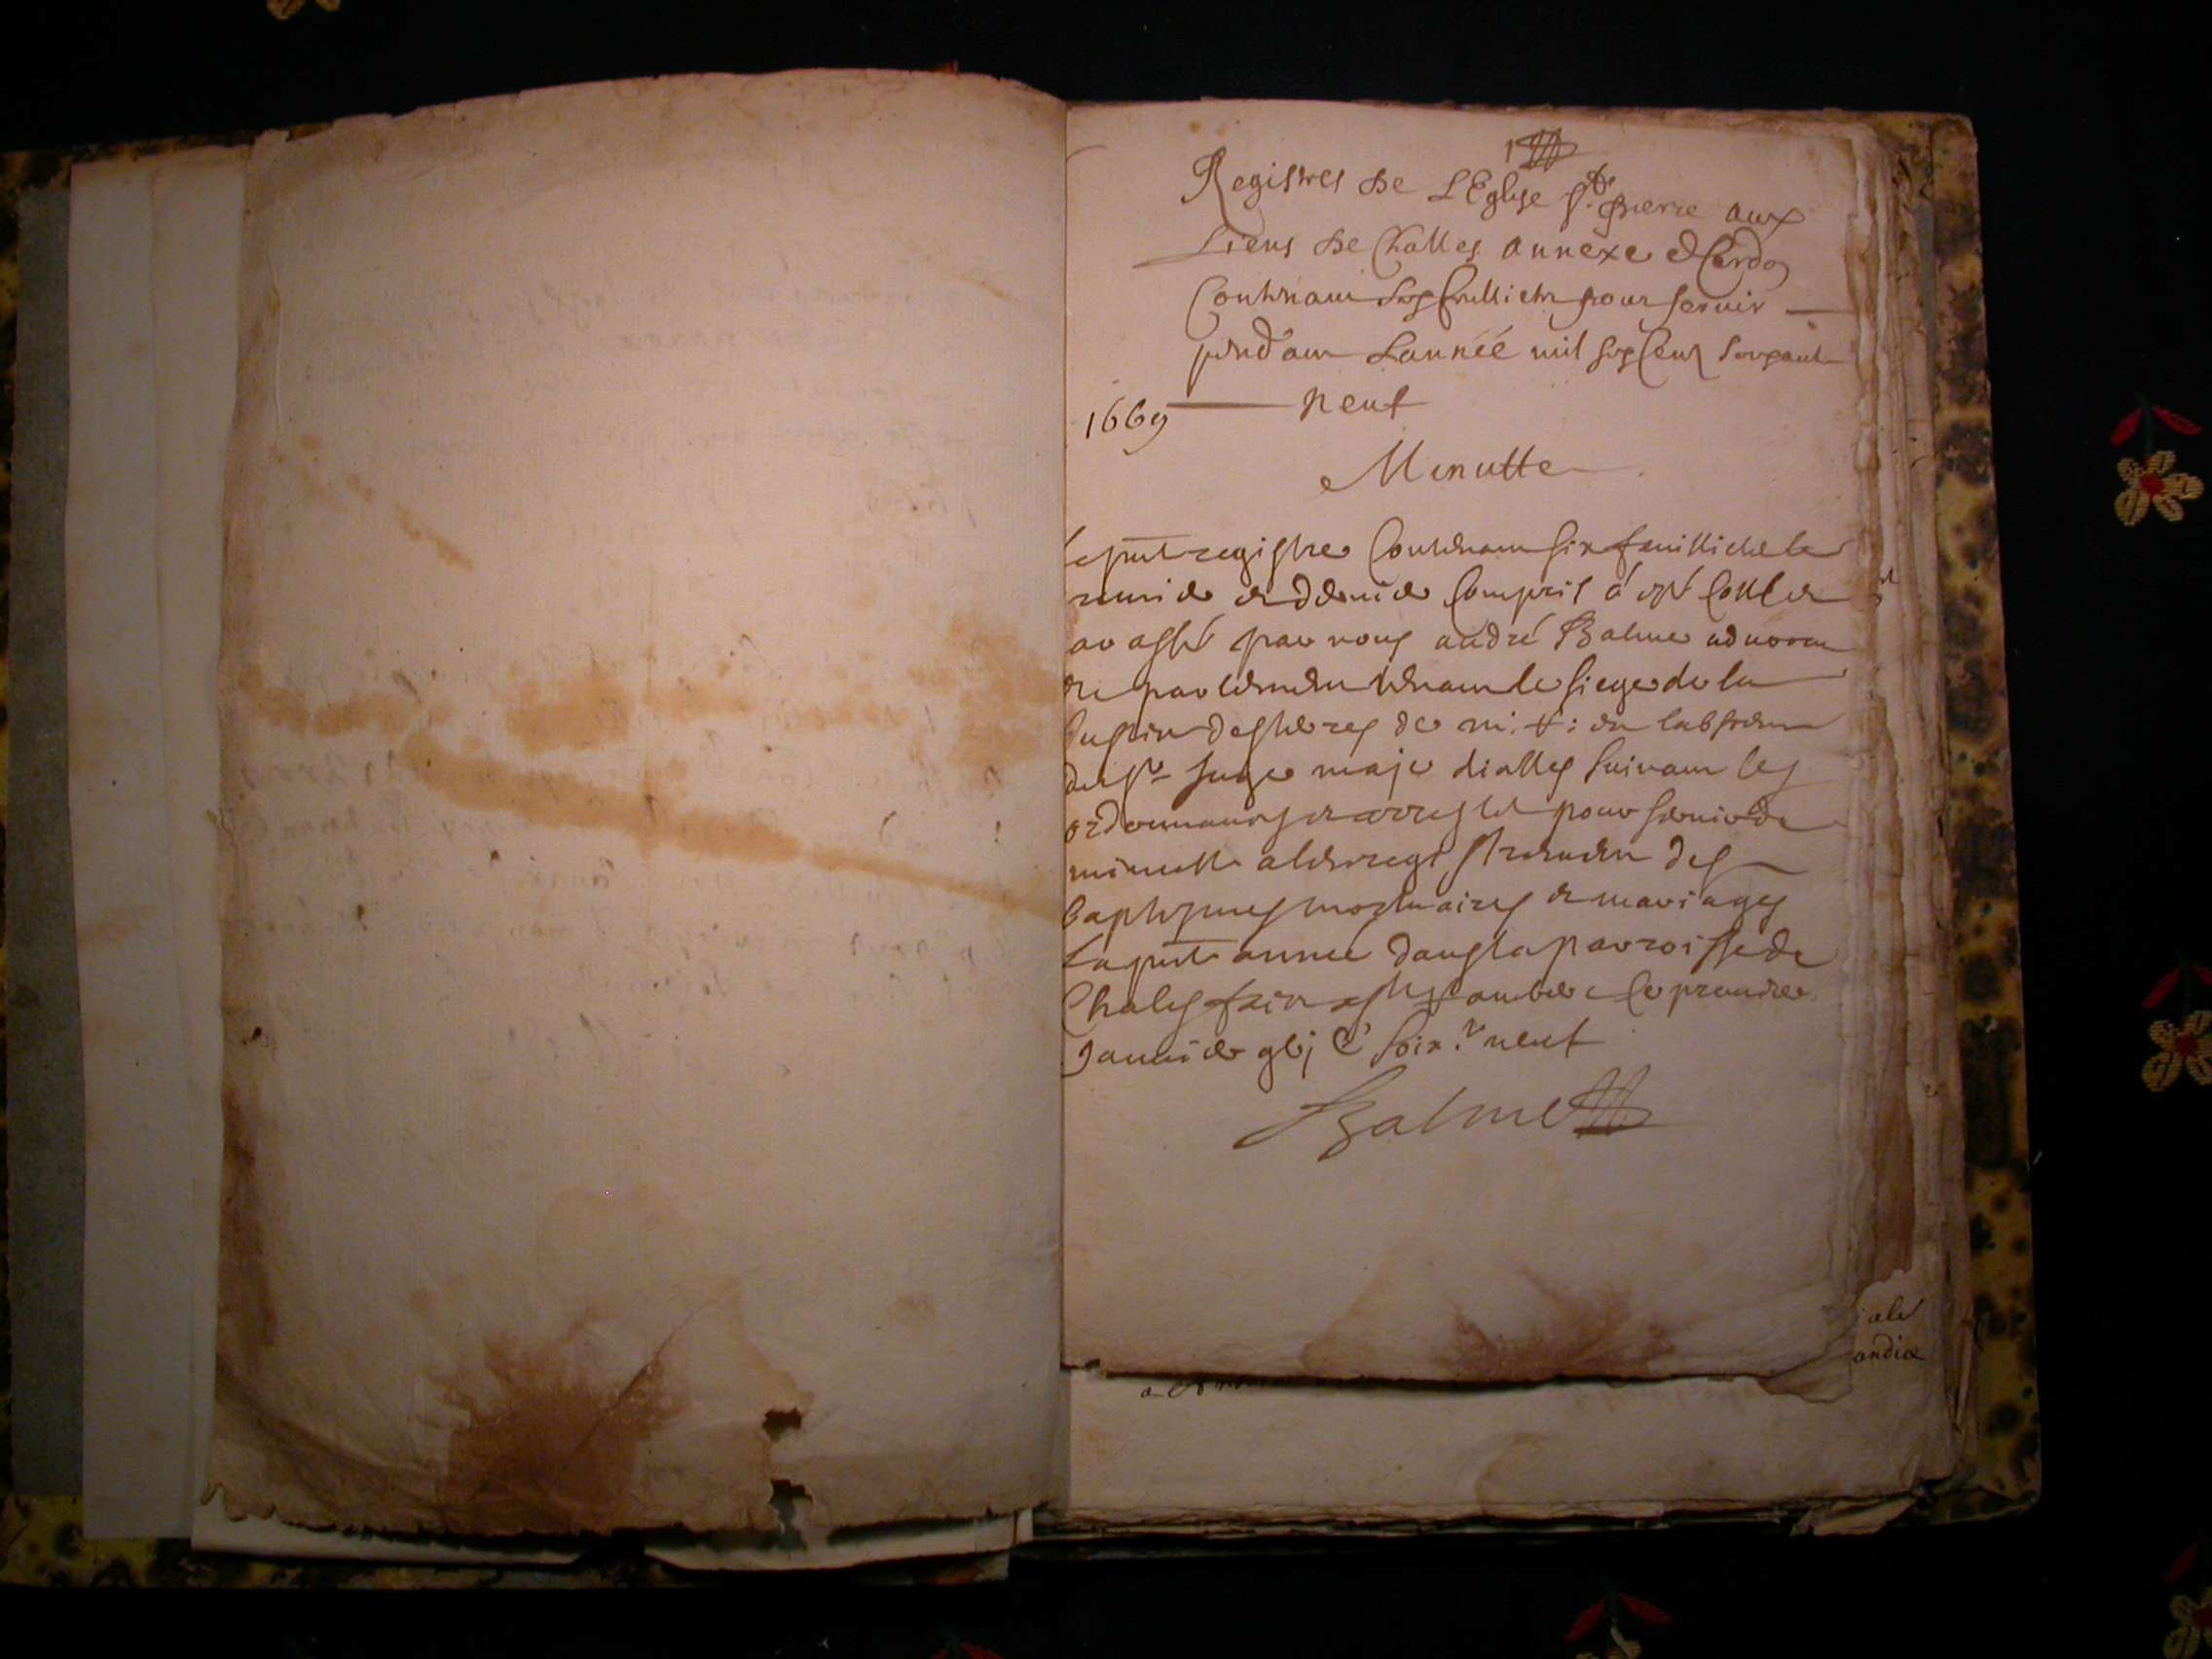 1
Registres de LEglise St. pierre aux
Liens de Challes annexe de Cerdon
Contenant six feullietz pour servir
pendant Lannée mil six Cent soixante
1669 neuf
Minutte
Le pnt registre Contenant six feuillietz le
premier et dernier Compris a esté Cotté et
paraffé par nous andré Balme advocat
en parlement tenant le siege de la
Justice des terres de
du Sr Juge maje dialles suivant les
ordonnances et arrestz pour servir de
minutte a lenregistrement des
baptesmes mortuaires et mariages
La pnte année dans la parroisse de
Chales fait a st Rambert le premier
Janvier gbj C soix.te neuf
Balme
ale
andiæ